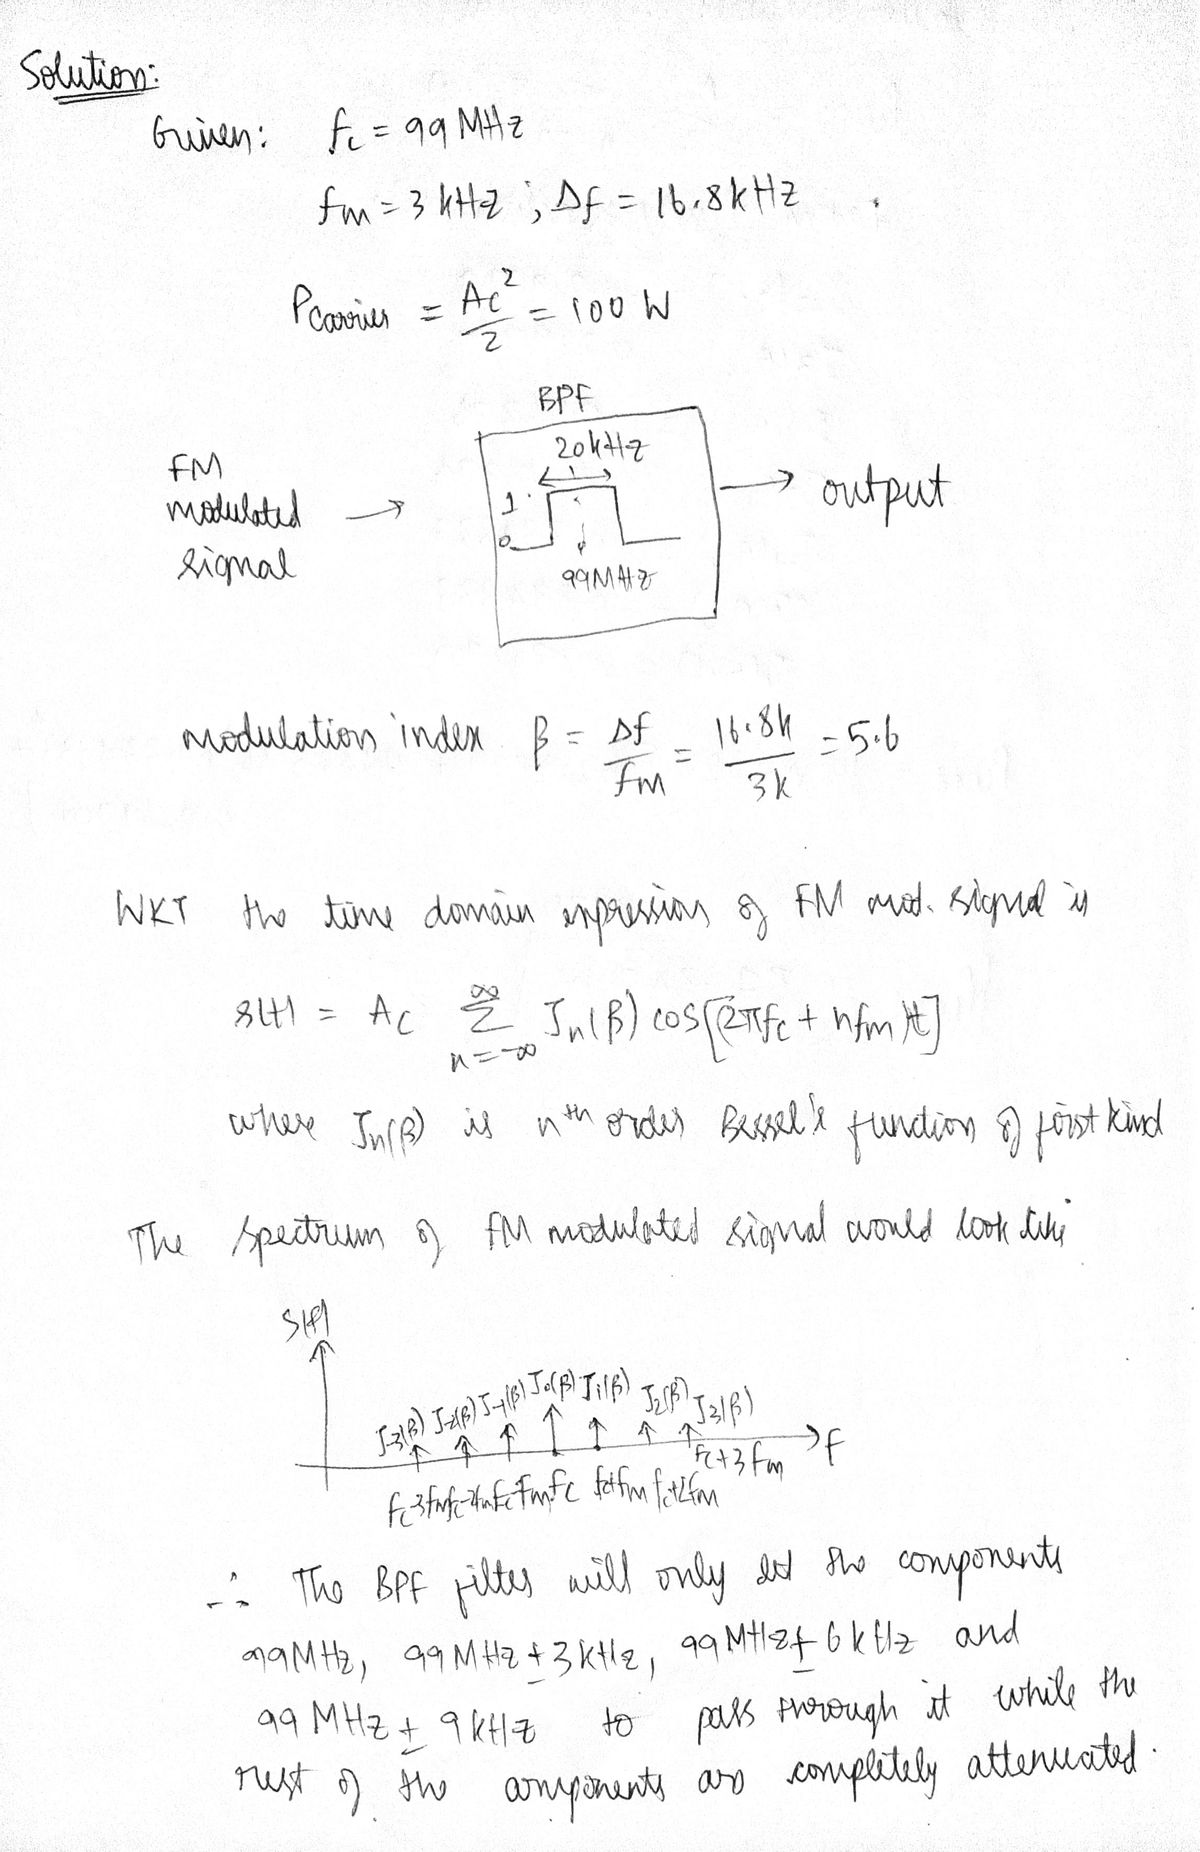 Solution:
Given: fc = 99 MHz
fm = 3 kHz ; Δf = 16.8 kHz
Pcarrier = Ac²/2 = 100 W
BPF
20kHz
FM
modulated
signal
1
0
99MHz
output
modulation index β = Δf/fm = 16.8k/3k = 5.6
WKT the time domain expression of FM mod. signal is
s(t) = Ac ∞Σn=-∞ Jn(β) cos[(2πfc + nfm)t]
where Jn(β) is nth order Bessel's function of first kind
The spectrum of FM modulated signal would look like
S(f)
J-3(β) J-2(β) J-1(β) J0(β) J1(β) J2(β) J3(β)
f
fc-3fm fc-2fm fc-fm fc fc+fm fc+2fm fc+3fm
∴ The BPF filter will only let the components
99MHz, 99 MHz ± 3kHz, 99 MHz ± 6 kHz and
99 MHz ± 9 kHz to pass through it while the
rest of the components are completely attenuated.